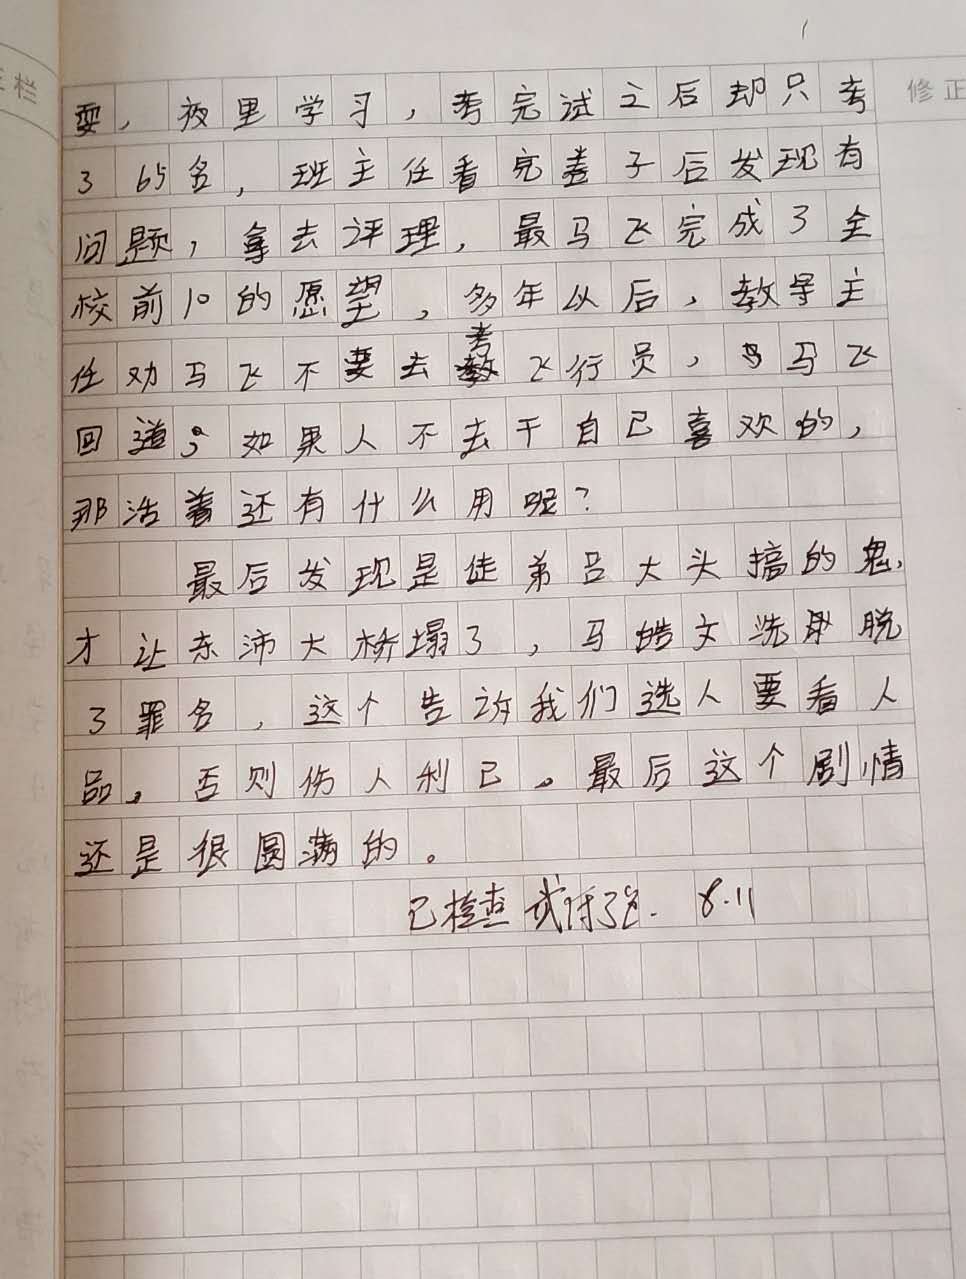 正栏
修正
耍，夜里学习，考完试之后却只考
了65名，班主任看完卷子后发现有
问题，拿去评理，最马飞完成了全
校前10的愿望，多年以后，教导主
任劝马飞不要去考飞行员，马飞
回道；如果人不去干自己喜欢的，
那活着还有什么用呢？
最后发现是徒弟吕大头搞的鬼，
才让东沛大桥塌了，马皓文洗脱
了罪名，这个告诉我们选人要看人
品，否则伤人利己。最后这个剧情
还是很圆满的。
已检查 8.11